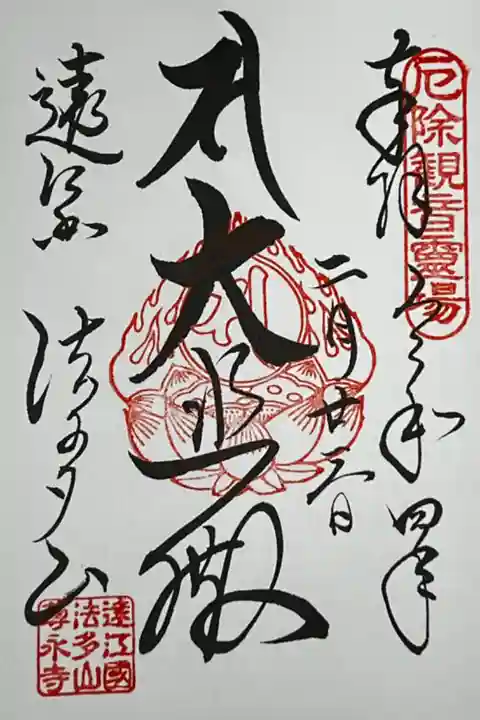 厄除觀音靈場
奉拝 令和四年
二月廿三日
大悲殿
遠江 法多山
遠江國
法多山
尊永寺